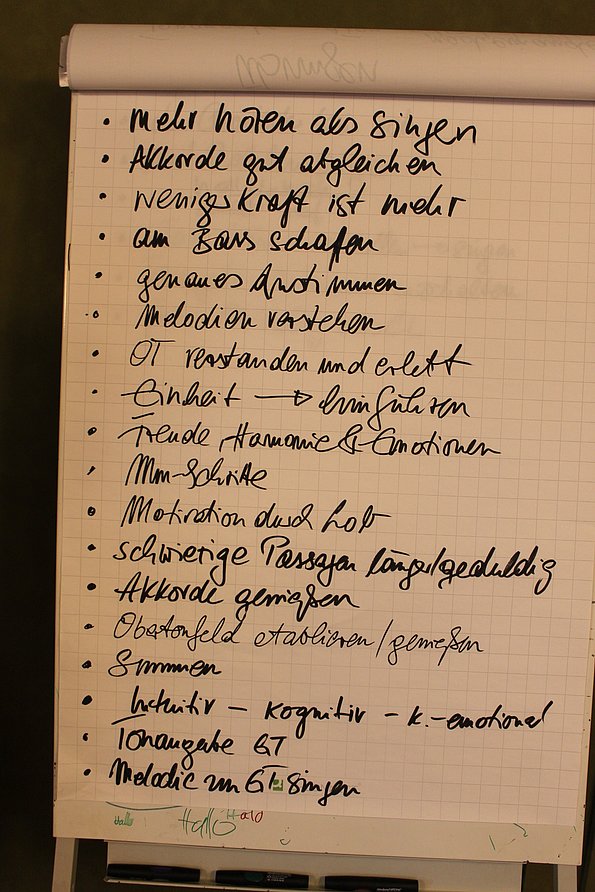 • mehr hören als singen
• Akkorde gut abgleichen
• weniger Kraft ist mehr
• am Bass schaffen
• genaues Anstimmen
• Melodien verstehen
• OT verstanden und erlebt
• Einheit → hinführen
• Freude, Harmonie & Emotionen
• Mm-Schritte
• Motivation durch Lob
• schwierige Passagen länger/geduldig
• Akkorde genießen
• Obertonfeld etablieren/genießen
• Summen
• Intuitiv – kognitiv – k.-emotional
• Tonangabe GT
• Melodie zum GT singen
Hallo Hallo Halo